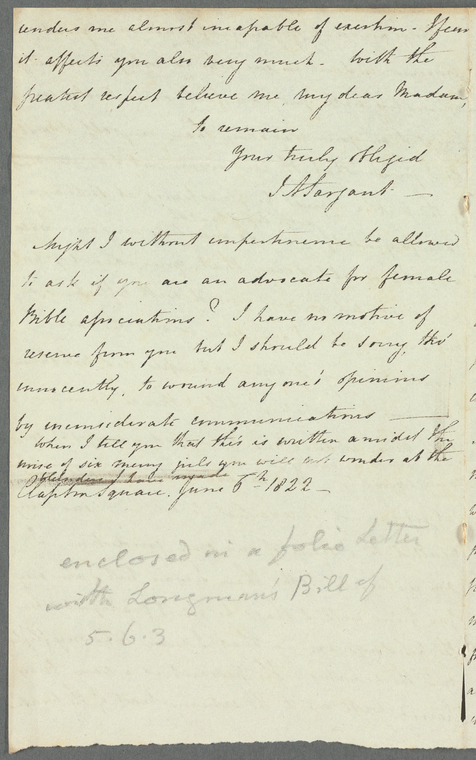 renders me almost incapable of exertion - I fear
it affects you also very much - with the
greatest respect believe me, my dear Madam,
to remain
Your truly obliged
J A Sargant -
Might I without impertinence be allowed
to ask if you are an advocate for female
Bible associations? I have no motive of
reserve from you but I should be sorry, tho'
innocently, to wound any one's opinions
by inconsiderate communications -
When I tell you that this is written amidst the
noise of six merry girls you will not wonder at the
blunders I have made
Clapton Square, June 6th 1822 -
enclosed in a folio Letter
with Longman's Bill of
5.6.3